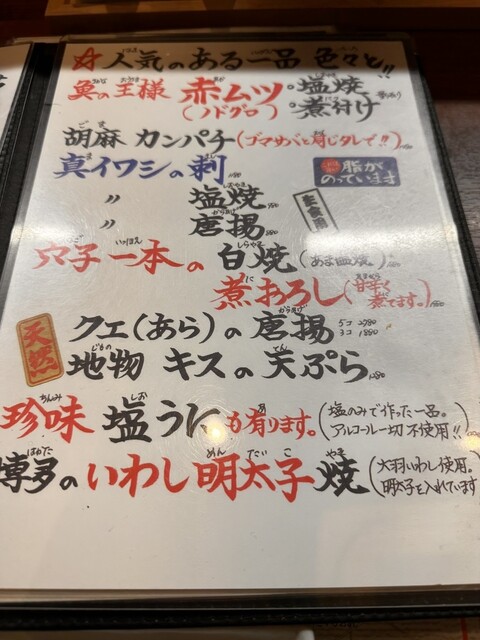 ☆人気のある一品 色々と!!
魚の王様 赤ムツ(ノドグロ)・塩焼
・煮付け
胡麻 カンパチ(ゴマサバと同じタレで!!)
真イワシの刺
脂がのっています
〃 塩焼
〃 唐揚
生食用
穴子一本の 白焼
煮おろし(甘辛く煮てます。)
天然
クエ(あら)の唐揚 5コ 2780
3コ 1880
地物 キスの天ぷら
珍味 塩うにも有ります。(塩のみで作った一品。アルコール一切不使用!!)
博多のいわし明太子焼(大羽いわし使用。明太子を入れています